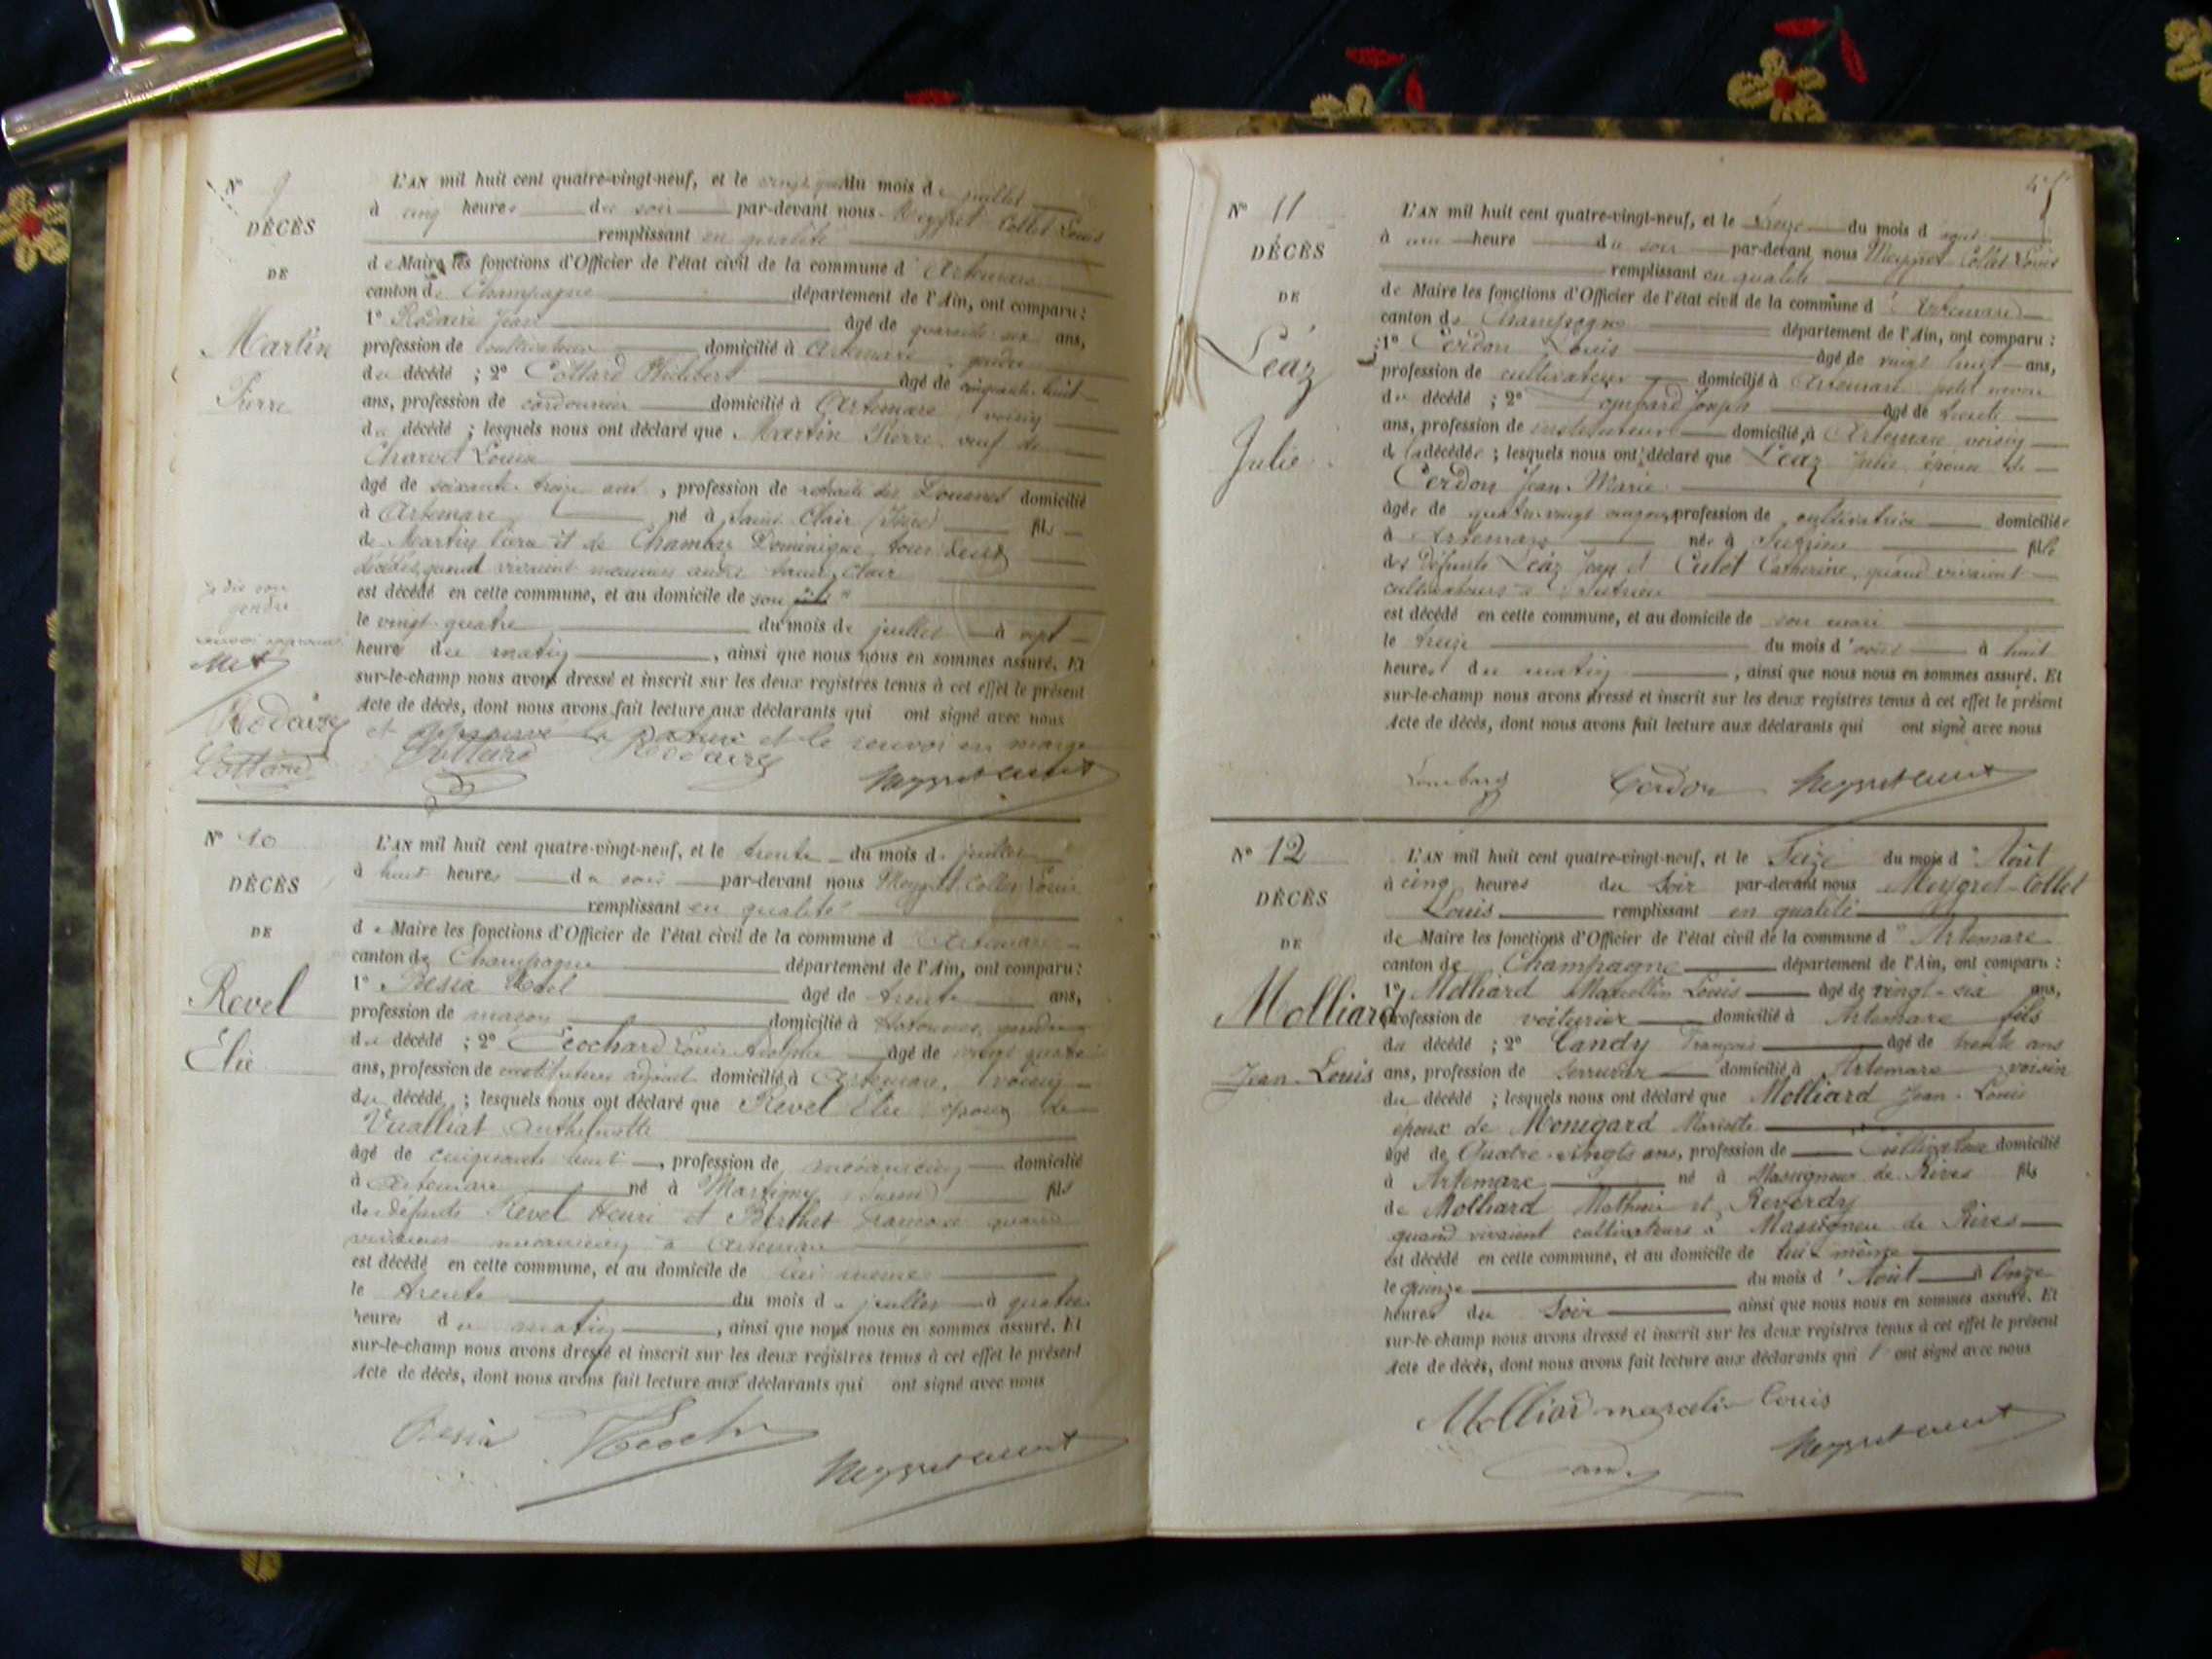 N° 9
DÉCÈS
DE
Martin
Pierre
L'AN mil huit cent quatre-vingt-neuf, et le du mois de juillet
à cinq heures du soir par-devant nous Meygret Collet Louis
remplissant en qualité
de Maire les fonctions d'Officier de l'état civil de la commune d' Artemare
canton de Champagne département de l'Ain, ont comparu :
1° Rodaire Jean âgé de quarante six ans,
profession de cultivateur domicilié à Artemare gendre
du décédé ; 2° Collard Philibert âgé de cinquante huit
ans, profession de cordonnier domicilié à Artemare voisin
du décédé ; lesquels nous ont déclaré que Martin Pierre veuf de
Charvet Louise
âgé de soixante treize ans, profession de retraité des Douanes domicilié
à Artemare né à Saint Clair (Isère) fils
de Martin et de Dominique tous deux
décédés quand vivaient Saint Clair
est décédé en cette commune, et au domicile de son
le vingt-quatre du mois de juillet à sept
heures du matin, ainsi que nous nous en sommes assuré. Et
sur-le-champ nous avons dressé et inscrit sur les deux registres tenus à cet effet le présent
Acte de décès, dont nous avons fait lecture aux déclarants qui ont signé avec nous
et approuvé la rature et le renvoi en marge
Je dis son
gendre
renvoi approuvé
Rodaire
Collard
Collard Rodaire Meygret Collet
N° 10
DÉCÈS
DE
Revel
Élie
L'AN mil huit cent quatre-vingt-neuf, et le trente du mois de juillet
à huit heures du soir par-devant nous Meygret Collet Louis
remplissant en qualité
de Maire les fonctions d'Officier de l'état civil de la commune d' Artemare
canton de Champagne département de l'Ain, ont comparu :
1° Besia âgé de trente ans,
profession de maçon domicilié à gendre
du décédé ; 2° Ecochard Louis Adolphe âgé de vingt quatre
ans, profession de instituteur adjoint domicilié à Artemare, voisin
du décédé ; lesquels nous ont déclaré que Revel Élie époux de
Vualliat Anthelmette
âgé de cinquante huit, profession de mécanicien domicilié
à Artemare né à Martigny (Suisse) fils
de défunts Revel Henri et Berthet Françoise quand
vivaient à Artemare
est décédé en cette commune, et au domicile de lui même
le trente du mois de juillet à quatre
heures du matin, ainsi que nous nous en sommes assuré. Et
sur-le-champ nous avons dressé et inscrit sur les deux registres tenus à cet effet le présent
Acte de décès, dont nous avons fait lecture aux déclarants qui ont signé avec nous
Besia Meygret Collet
N° 11
DÉCÈS
DE
Léaz
Julie
L'AN mil huit cent quatre-vingt-neuf, et le treize du mois d'août
à une heure du soir par-devant nous Meygret Collet Louis
remplissant en qualité
de Maire les fonctions d'Officier de l'état civil de la commune d' Artemare
canton de Champagne département de l'Ain, ont comparu :
1° Cerdon Louis âgé de vingt huit ans,
profession de cultivateur domicilié à Artemare petit neveu
du décédé ; 2° Lombard Joseph âgé de trente
ans, profession de instituteur domicilié à Artemare voisin
de la décédée ; lesquels nous ont déclaré que Léaz Julie épouse de
Cerdon Jean-Marie
âgée de quatre-vingt ans, profession de cultivatrice domiciliée
à Artemare née à Sutrieu fille
des défunts Léaz Jean et Culet Catherine, quand vivaient
cultivateurs à Sutrieu
est décédé en cette commune, et au domicile de son mari
le treize du mois d'août à huit
heures du matin, ainsi que nous nous en sommes assuré. Et
sur-le-champ nous avons dressé et inscrit sur les deux registres tenus à cet effet le présent
Acte de décès, dont nous avons fait lecture aux déclarants qui ont signé avec nous
Lombard Cerdon Meygret Collet
N° 12
DÉCÈS
DE
Molliard
Jean-Louis
L'AN mil huit cent quatre-vingt-neuf, et le Seize du mois d'Août
à cinq heures du Soir par-devant nous Meygret-Collet
Louis remplissant en qualité
de Maire les fonctions d'Officier de l'état civil de la commune d'Artemare
canton de Champagne département de l'Ain, ont comparu :
1° Molliard Marcellin Louis âgé de vingt-six ans,
profession de voiturier domicilié à Artemare fils
du décédé ; 2° Candy François âgé de trente ans
ans, profession de Serrurier domicilié à Artemare voisin
du décédé ; lesquels nous ont déclaré que Molliard Jean-Louis
époux de Monigard Mariette
âgé de Quatre-vingts ans, profession de Cultivateur domicilié
à Artemare né à Massigneu de Rives fils
de Molliard Mathieu et Reverdy
quand vivaient cultivateurs à Massigneu de Rives
est décédé en cette commune, et au domicile de lui-même
le quinze du mois d'Août à Onze
heures du Soir ainsi que nous nous en sommes assuré. Et
sur-le-champ nous avons dressé et inscrit sur les deux registres tenus à cet effet le présent
Acte de décès, dont nous avons fait lecture aux déclarants qui ont signé avec nous
Molliard marcelin Louis
Candy Meygret Collet